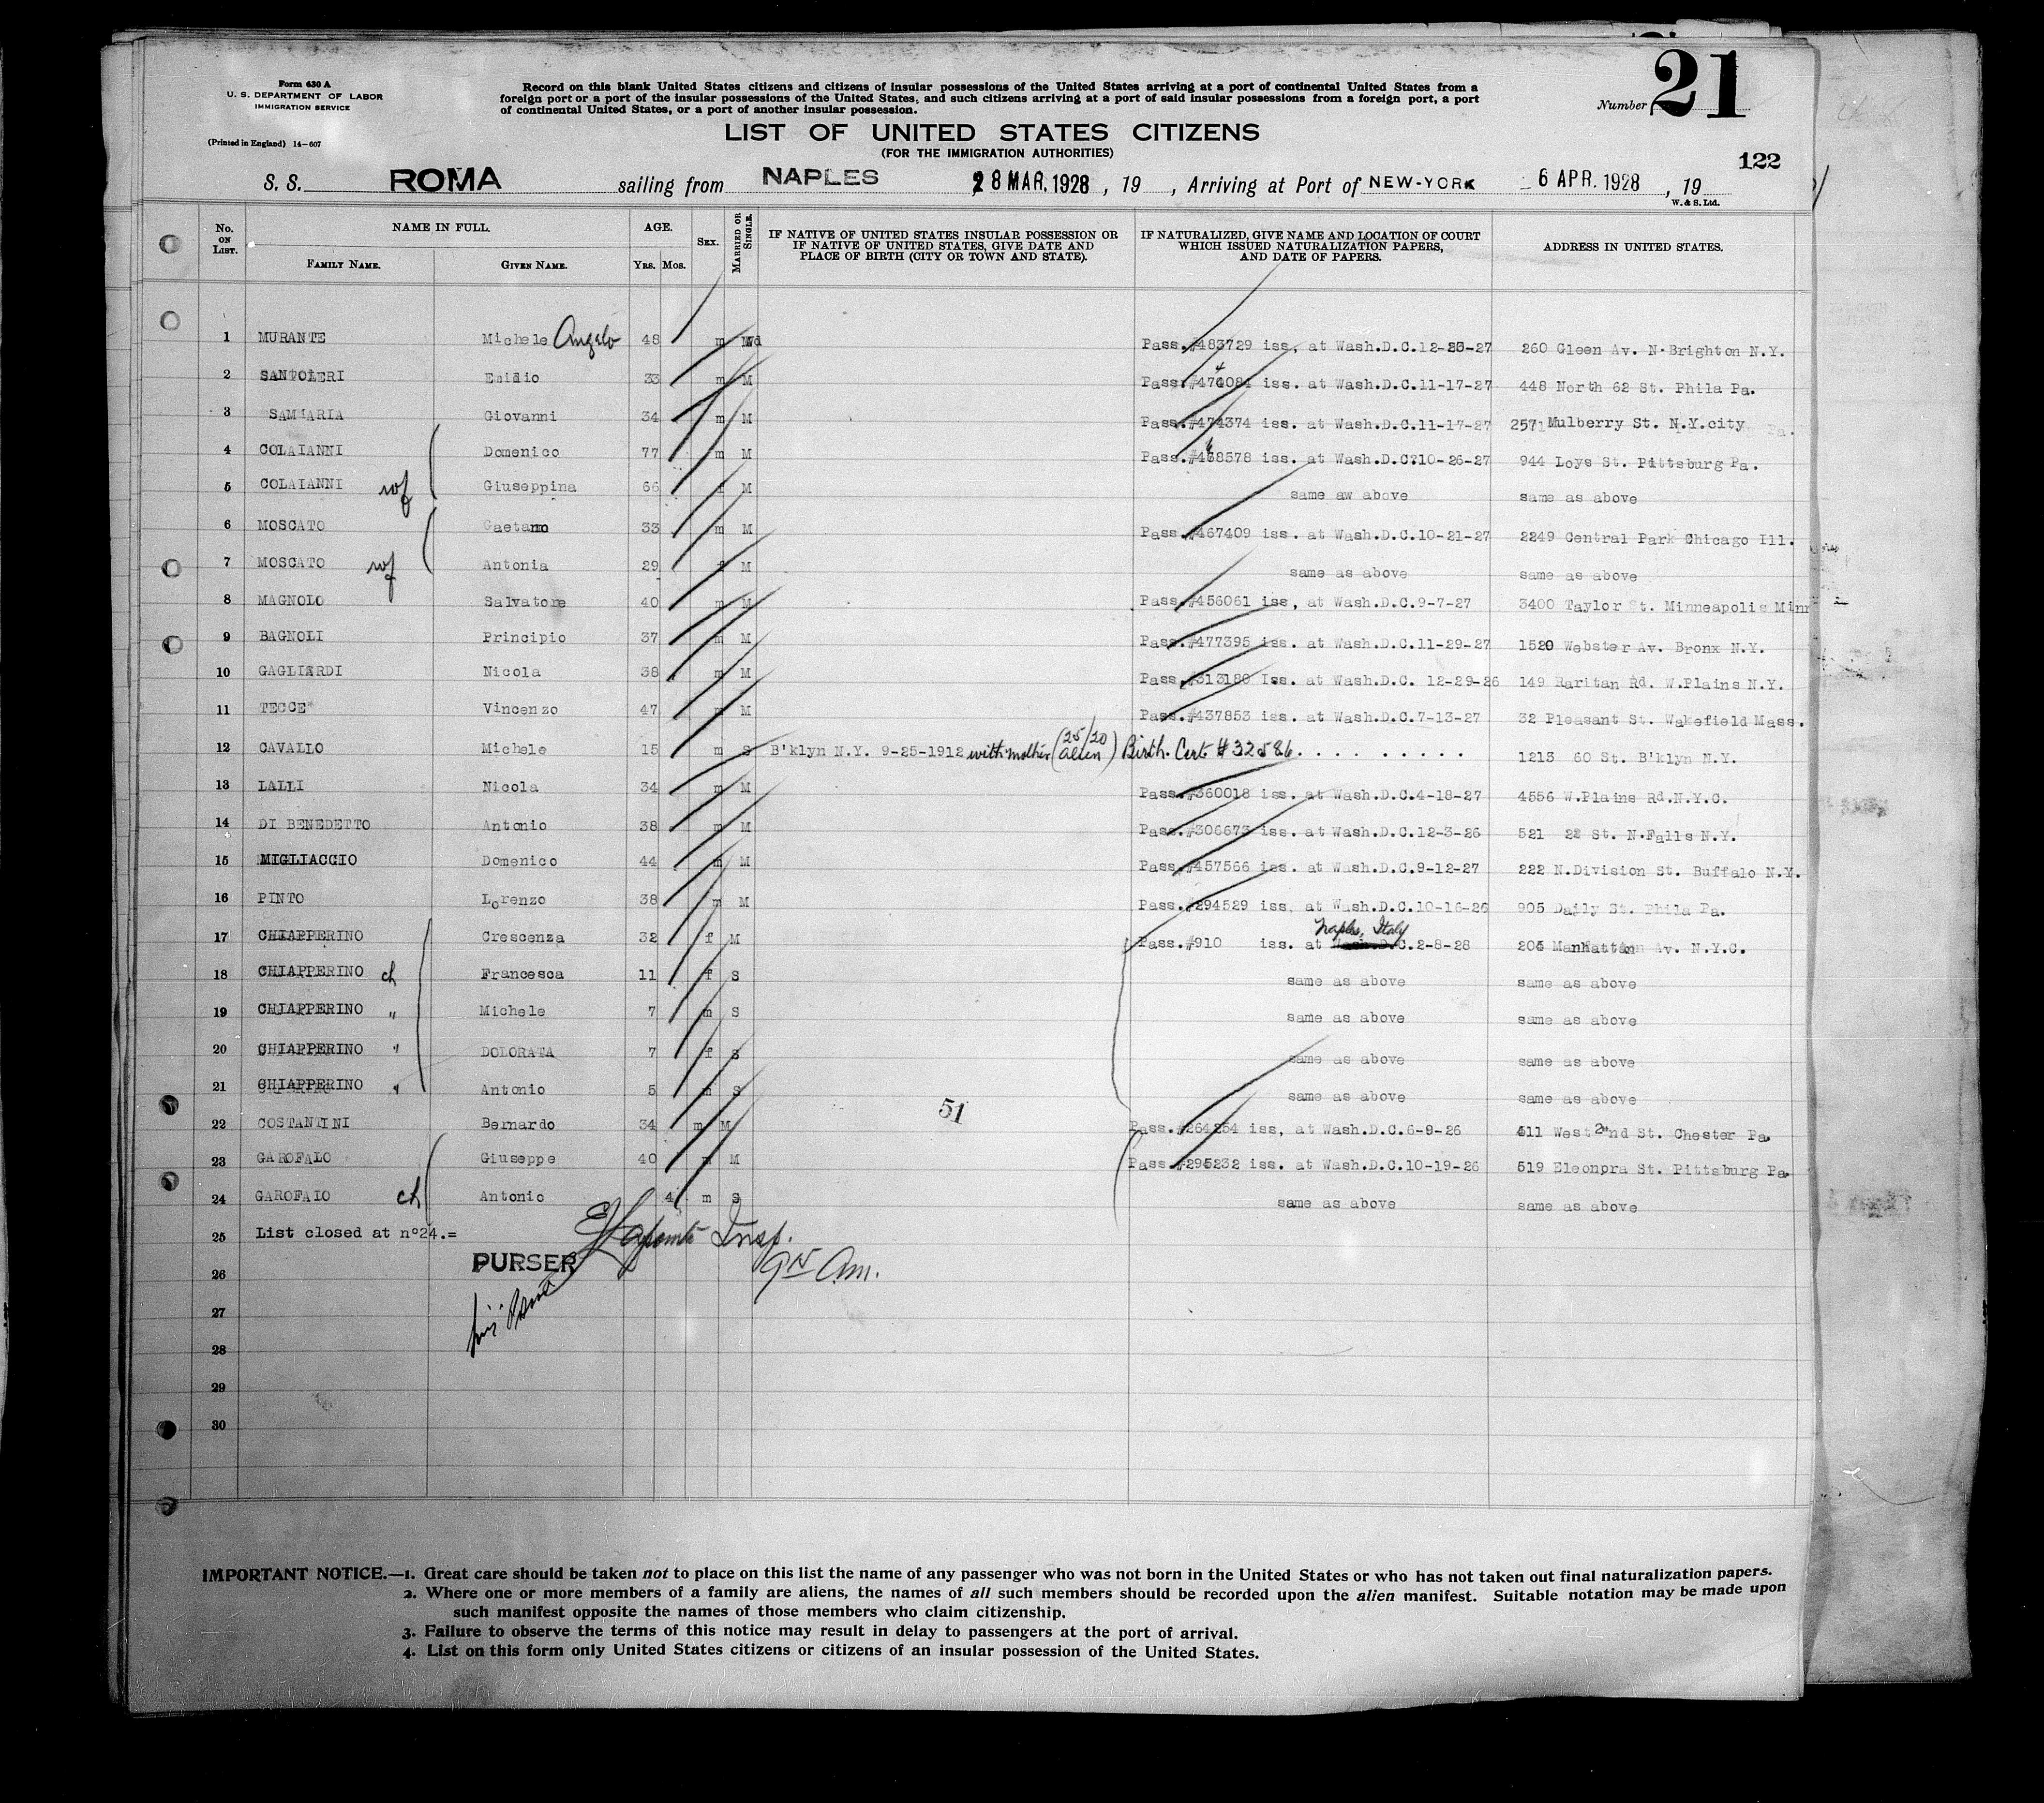 Form 630 A
U. S. DEPARTMENT OF LABOR
IMMIGRATION SERVICE
(Printed in England) 14—607
Record on this blank United States citizens and citizens of insular possessions of the United States arriving at a port of continental United States from a
foreign port or a port of the insular possessions of the United States, and such citizens arriving at a port of said insular possessions from a foreign port, a port
of continental United States, or a port of another insular possession.
Number 21
LIST OF UNITED STATES CITIZENS
(FOR THE IMMIGRATION AUTHORITIES)
122
S. S. ROMA sailing from NAPLES 28 MAR. 1928 , 19 , Arriving at Port of NEW-YORK 6 APR. 1928 , 19
W. & S. Ltd.
No. ON LIST. NAME IN FULL. FAMILY NAME. GIVEN NAME. AGE. YRS. MOS. SEX. MARRIED OR SINGLE. IF NATIVE OF UNITED STATES INSULAR POSSESSION OR IF NATIVE OF UNITED STATES, GIVE DATE AND PLACE OF BIRTH (CITY OR TOWN AND STATE). IF NATURALIZED, GIVE NAME AND LOCATION OF COURT WHICH ISSUED NATURALIZATION PAPERS, AND DATE OF PAPERS. ADDRESS IN UNITED STATES.
1 MURANTE Michele Angelo 48 m Wd Pass.#483729 iss, at Wash.D.C.12-28-27 260 Gleen Av. N.Brighton N.Y.
2 SANTOLERI Emidio 33 m M Pass.#474084 iss. at Wash.D.C.11-17-27 448 North 62 St. Phila Pa.
3 SAMMARIA Giovanni 34 m M Pass.#474374 iss. at Wash.D.C.11-17-27 257 Mulberry St. N.Y.city
4 COLAIANNI Domenico 77 m M Pass.#468578 iss. at Wash.D.C.10-26-27 944 Loys St. Pittsburg Pa.
5 COLAIANNI wf Giuseppina 66 f M same aw above same as above
6 MOSCATO Gaetano 33 m M Pass.#467409 iss. at Wash.D.C.10-21-27 2249 Central Park Chicago Ill.
7 MOSCATO wf Antonia 29 f M same as above same as above
8 MAGNOLO Salvatore 40 m M Pass.#456061 iss, at Wash.D.C.9-7-27 3400 Taylor St. Minneapolis Minn
9 BAGNOLI Principio 37 m M Pass.#477395 iss. at Wash.D.C.11-29-27 1520 Webster Av. Bronx N.Y.
10 GAGLIARDI Nicola 38 m M Pass.#313180 Iss. at Wash.D.C. 12-29-26 149 Raritan Rd. W.Plains N.Y.
11 TECCE Vincenzo 47 m M Pass.#437853 iss. at Wash.D.C.7-13-27 32 Pleasant St. Wakefield Mass.
12 CAVALLO Michele 15 m S B'klyn N.Y. 9-25-1912 with mother (25/20 alien) Birth. Cert #32586. . . . . . . . . . 1213 60 St. B'klyn N.Y.
13 LALLI Nicola 34 m M Pass.#360018 iss. at Wash.D.C.4-18-27 4556 W.Plains Rd.N.Y.C.
14 DI BENEDETTO Antonio 38 m M Pass.#306673 iss. at Wash.D.C.12-3-26 521 22 St. N.Falls N.Y.
15 MIGLIACCIO Domenico 44 m M Pass.#457566 iss. at Wash.D.C.9-12-27 222 N.Division St. Buffalo N.Y.
16 PINTO Lorenzo 38 m M Pass.#294529 iss, at Wash.D.C.10-16-26 905 Daily St. Phila Pa.
17 CHIAPPERINO Crescenza 32 f M Pass.#910 iss. at Naples, Italy Wash.D.C.2-8-28 Manhattan Av. N.Y.C.
18 CHIAPPERINO ch Francesca 11 f S same as above same as above
19 CHIAPPERINO " Michele 7 m S same as above same as above
20 CHIAPPERINO " DOLORATA 7 f S same as above same as above
21 CHIAPPERINO " Antonio 5 m S same as above same as above
51
22 COSTANTINI Bernardo 34 m M Pass.#264254 iss, at Wash.D.C.6-9-26 411 West 2nd St. Chester Pa.
23 GAROFALO Giuseppe 40 m M Pass.#295232 iss. at Wash.D.C.10-19-26 519 Eleonpra St. Pittsburg Pa.
24 GAROFAlO ch Antonio 4 m S same as above same as above
25 List closed at n°24.=
Insp.
26 PURSER 9 N Am.
27
28
29
30
IMPORTANT NOTICE.—1. Great care should be taken not to place on this list the name of any passenger who was not born in the United States or who has not taken out final naturalization papers.
2. Where one or more members of a family are aliens, the names of all such members should be recorded upon the alien manifest. Suitable notation may be made upon
such manifest opposite the names of those members who claim citizenship.
3. Failure to observe the terms of this notice may result in delay to passengers at the port of arrival.
4. List on this form only United States citizens or citizens of an insular possession of the United States.